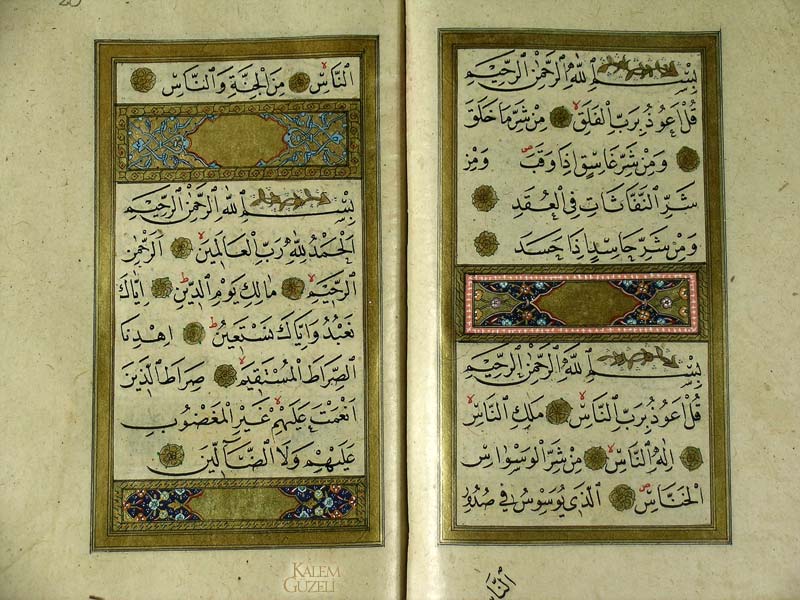 بِسْمِ اللّٰهِ الرَّحْمٰنِ الرَّحِيمِ
قُلْ اَعُوذُ بِرَبِّ الْفَلَقِ مِنْ شَرِّ مَا خَلَقَ
وَمِنْ شَرِّ غَاسِقٍ اِذَا وَقَبَ وَمِنْ
شَرِّ النَّفَّاثَاتِ فِي الْعُقَدِ
وَمِنْ شَرِّ حَاسِدٍ اِذَا حَسَدَ
بِسْمِ اللّٰهِ الرَّحْمٰنِ الرَّحِيمِ
قُلْ اَعُوذُ بِرَبِّ النَّاسِ مَلِكِ النَّاسِ
اِلٰهِ النَّاسِ مِنْ شَرِّ الْوَسْوَاسِ
الْخَنَّاسِ الَّذِي يُوَسْوِسُ فِي صُدُورِ
النَّاسِ
النَّاسِ مِنَ الْجِنَّةِ وَالنَّاسِ
بِسْمِ اللّٰهِ الرَّحْمٰنِ الرَّحِيمِ
اَلْحَمْدُ لِلّٰهِ رَبِّ الْعَالَمِينَ اَلرَّحْمٰنِ
الرَّحِيمِ مَالِكِ يَوْمِ الدِّينِ اِيَّاكَ
نَعْبُدُ وَاِيَّاكَ نَسْتَعِينُ اِهْدِنَا
الصِّرَاطَ الْمُسْتَقِيمَ صِرَاطَ الَّذِينَ
اَنْعَمْتَ عَلَيْهِمْ غَيْرِ الْمَغْضُوبِ
عَلَيْهِمْ وَلَا الضَّالِّينَ
KALEM
GÜZELİ